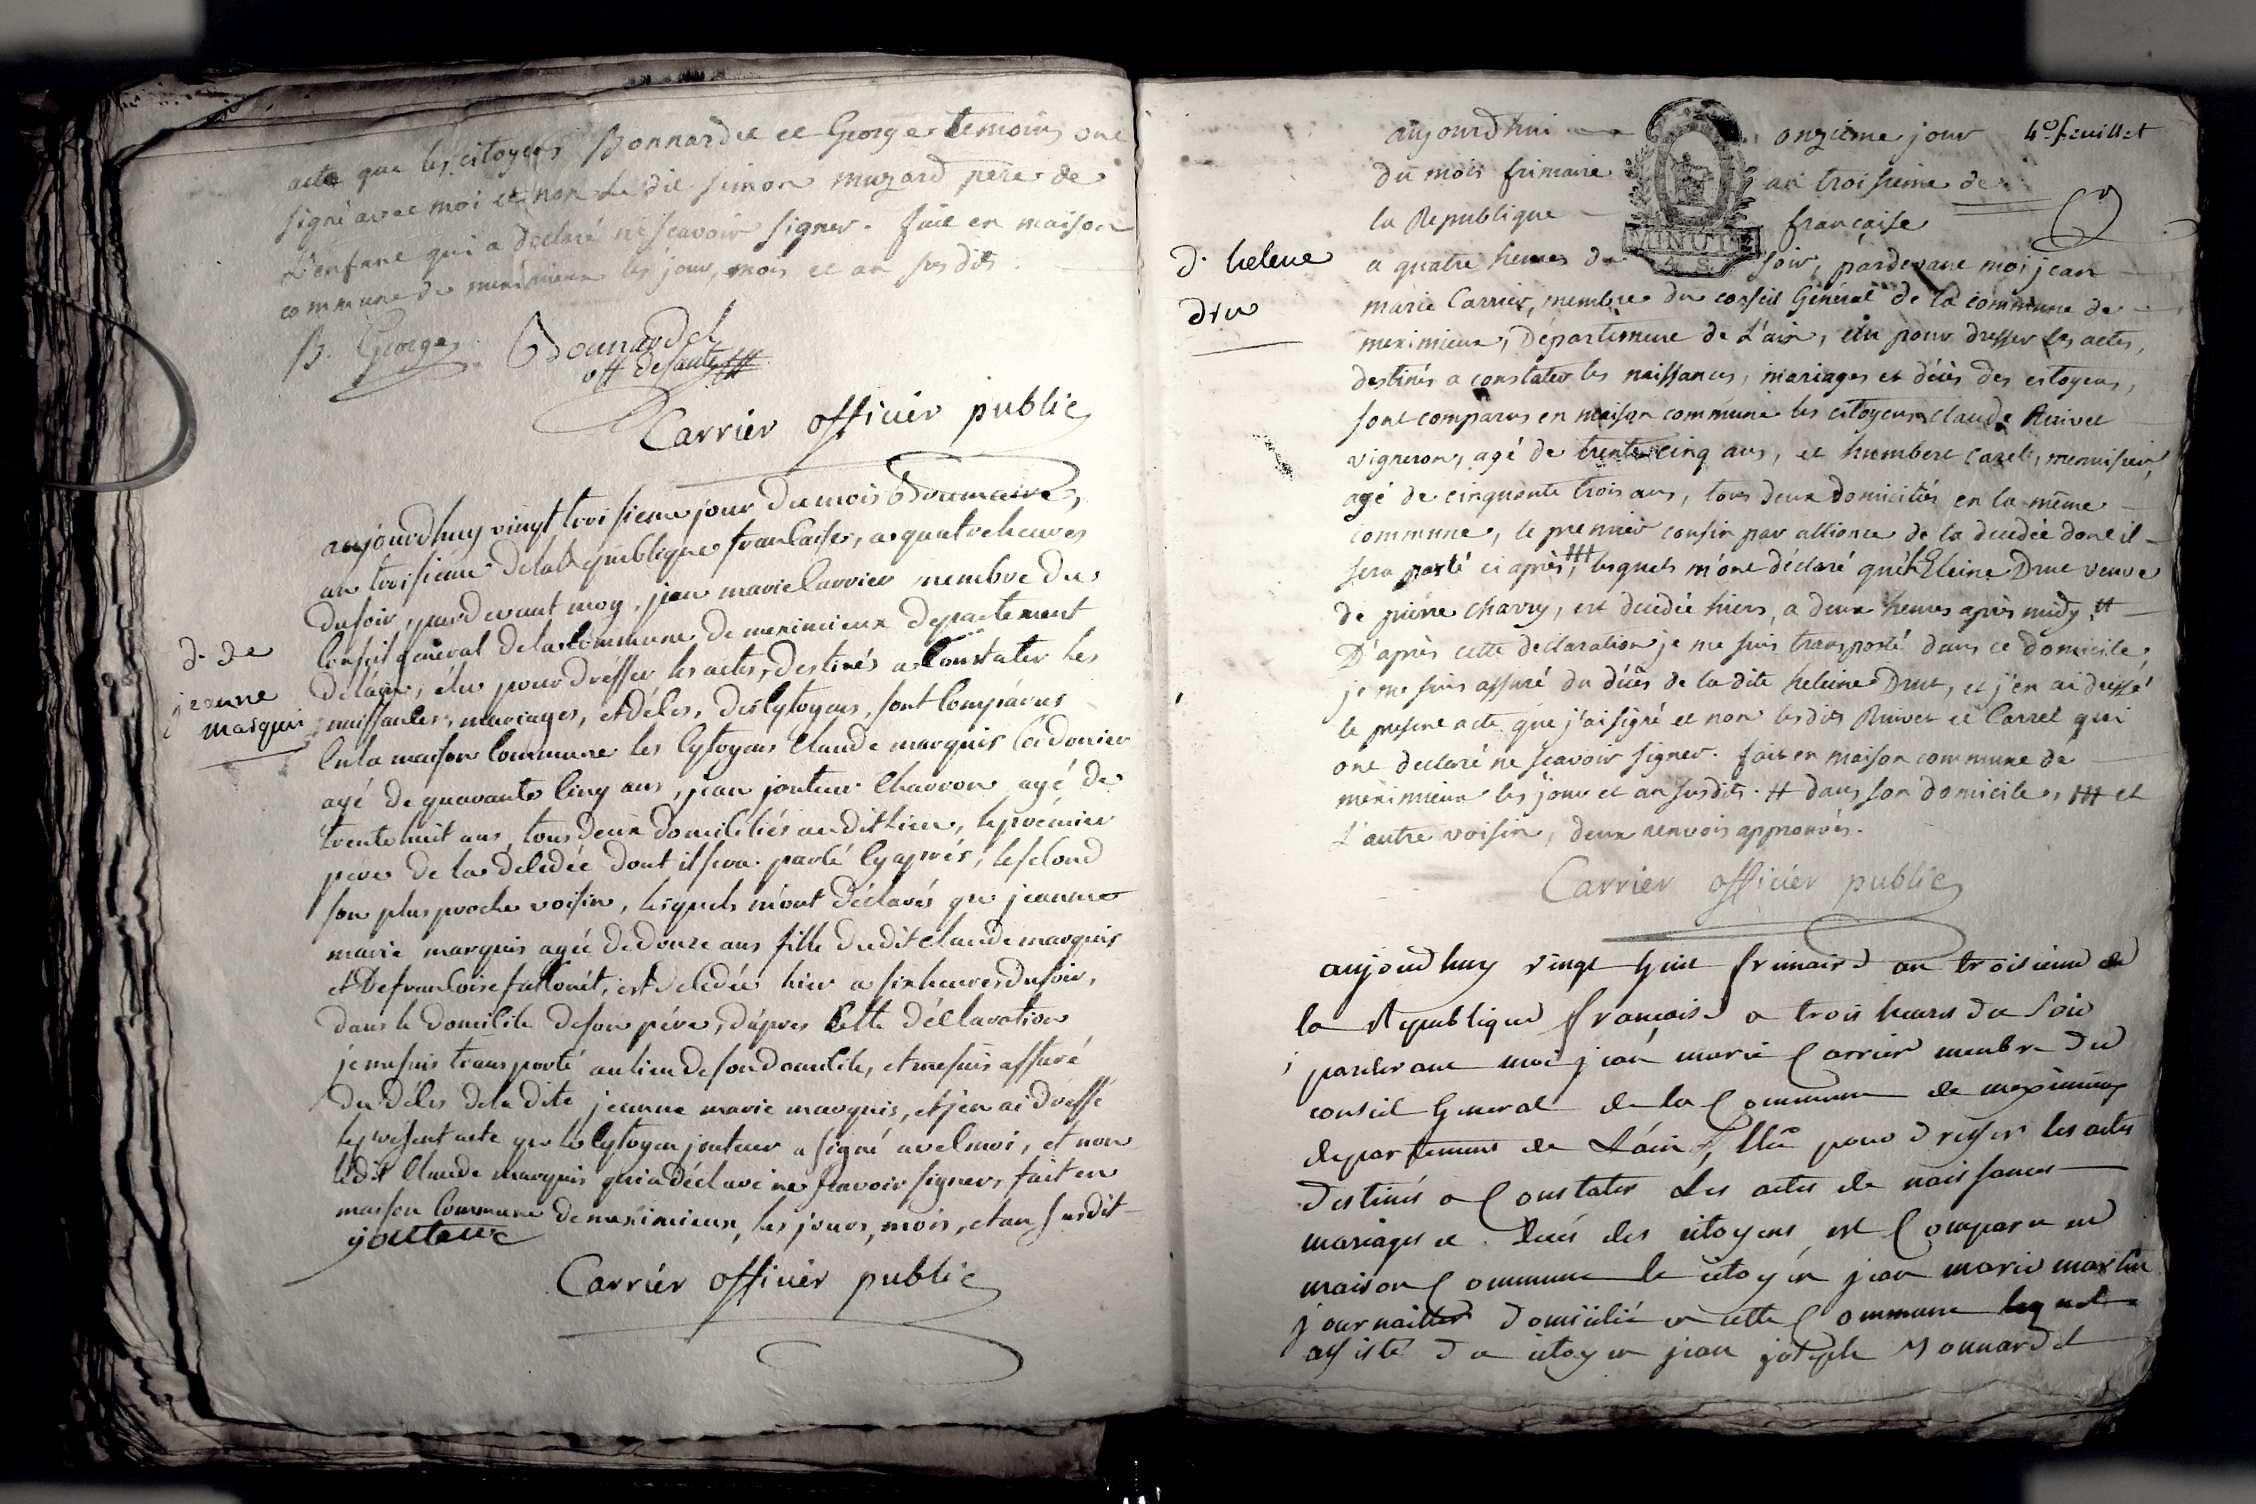 acte que les citoyens Bonnardel et George temoins ont
signé avec moi et non le dit simon muzard père de
L'enfant qui a declaré ne scavoir signer. fait en maison
commune de meximieux les jour, mois et an sus dits.
B. George Bonnardel
off de santé
Carrier officier public
aujourdhuy vingt troisieme jour du mois Brumaire,
an troisieme de la Republique francaise, a quatre heures
du soir, pardevant moy, jean marie Carrier membre du
Conseil general de la Commune de meximieux departement
de lain, élu pour dresser les actes, destinés a Constater les
naissances, mariages, et déces, des Cytoyens, sont Comparus
d. de
jeanne
marquis
En la maison Commune les Cytoyens Claude marquis Cordonier
agé de quarante Cinq ans, jean jouteur Charron agé de
trente huit ans, tous deux domiciliés audit lieu, le premier
pere de la décédée dont il sera parlé Cy après, le second
son plus proche voisin, lesquels m'ont déclarés que jeanne
marie marquis agée de douze ans fille dudit Claude marquis
et De francoise, est décédée hier a six heures du soir,
dans le domicile de son père, d'apres Cette déclaration
je me suis transporté au lieu de son domicile, et me suis assuré
du décès de la dite jeanne marie marquis, et j'en ai dréssé
le present acte que le Cytoyen jouteur a signé avec moi, et non
ledit Claude marquis qui a déclaré ne scavoir signer, fait en
maison Commune de meximieux, les jours, mois, et an susdit
jouteur
Carrier officier public
4e feuillet
aujourdhui onzieme jour
du mois frimaire an troisieme de
la Republique française
MINUTE
d. helene
dru
a quatre heures du soir, pardevant moi jean
marie Carrier, membre du conseil Général de la commune de
meximieux, Département de L'ain, élu pour dresser les actes,
destinés a constater les naissances, mariages et décès des citoyens,
sont comparus en maison commune les citoyens claude Ruivet
vigneron, agé de trente cinq ans, et humbert Carel, menuisier,
agé de cinquante trois ans, tous deux domiciliés en la même
commune, le premier cousin par alliance de la decedée dont il
sera parlé ci après, ### lesquels m'ont déclaré que heleine Drut veuve
de pierre charvy, est decedée hiers, a deux heures après midy. #
D'après cette declaration je me suis transporté dans ce domicile,
je me suis assuré du décès de la dite heleine Drut, et j'en ai dressé
le present acte que j'ai signé et non lesdits Ruivet et Carrel qui
ont declaré ne scavoir signer. fait en maison commune de
meximieux les jour et an susdits. # dans son domicile, ### et
L'autre voisin, deux renvois approuvés.
Carrier officier public
aujourdhuy vingt huit frimaire an troisieme de
la Republique francaise a trois heures du soir
pardevant moi jean marie Carrier membre du
conseil General de la Commune de meximieux
departement de L'ain, Elu pour dresser les actes
destinés a Constater les actes de naissances
mariages et deces des citoyens est Comparu en
maison Commune le citoyen jean marie martin
journallier domicilié en cette Commune lequel
assisté du citoyen jean joseph Bonnardel